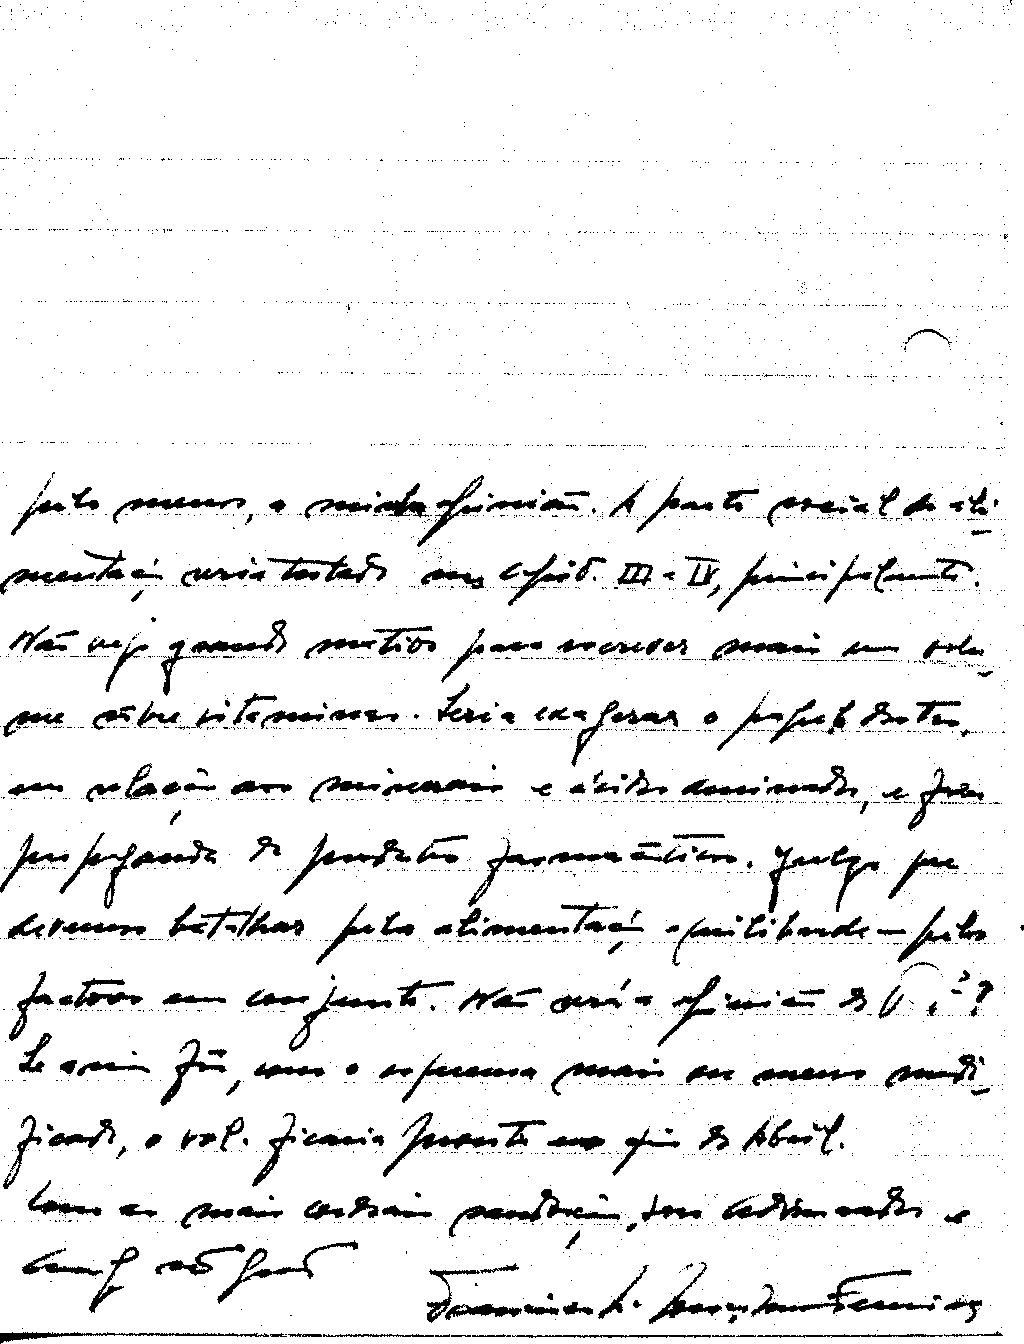 pelo menos, a minha opinião. A parte social da ali-
mentação seria tratada nos capít. III e IV, principalmente.
Não vejo grande motivo para escrever mais um volu-
me sobre vitaminas. Seria exagerar o
em relação aos minerais e ácidos aminados, e fazer
propaganda de produtos farmacêuticos. Julgo que
devemos batalhar pela alimentação equilibrada — pelos
factores em conjunto. Não será a opinião de V. ?
Se assim fôr, com o esquema mais ou menos modi-
ficado, o vol. ficaria pronto no fim de Abril.
Com as mais cordiais saudações, seu admirador e